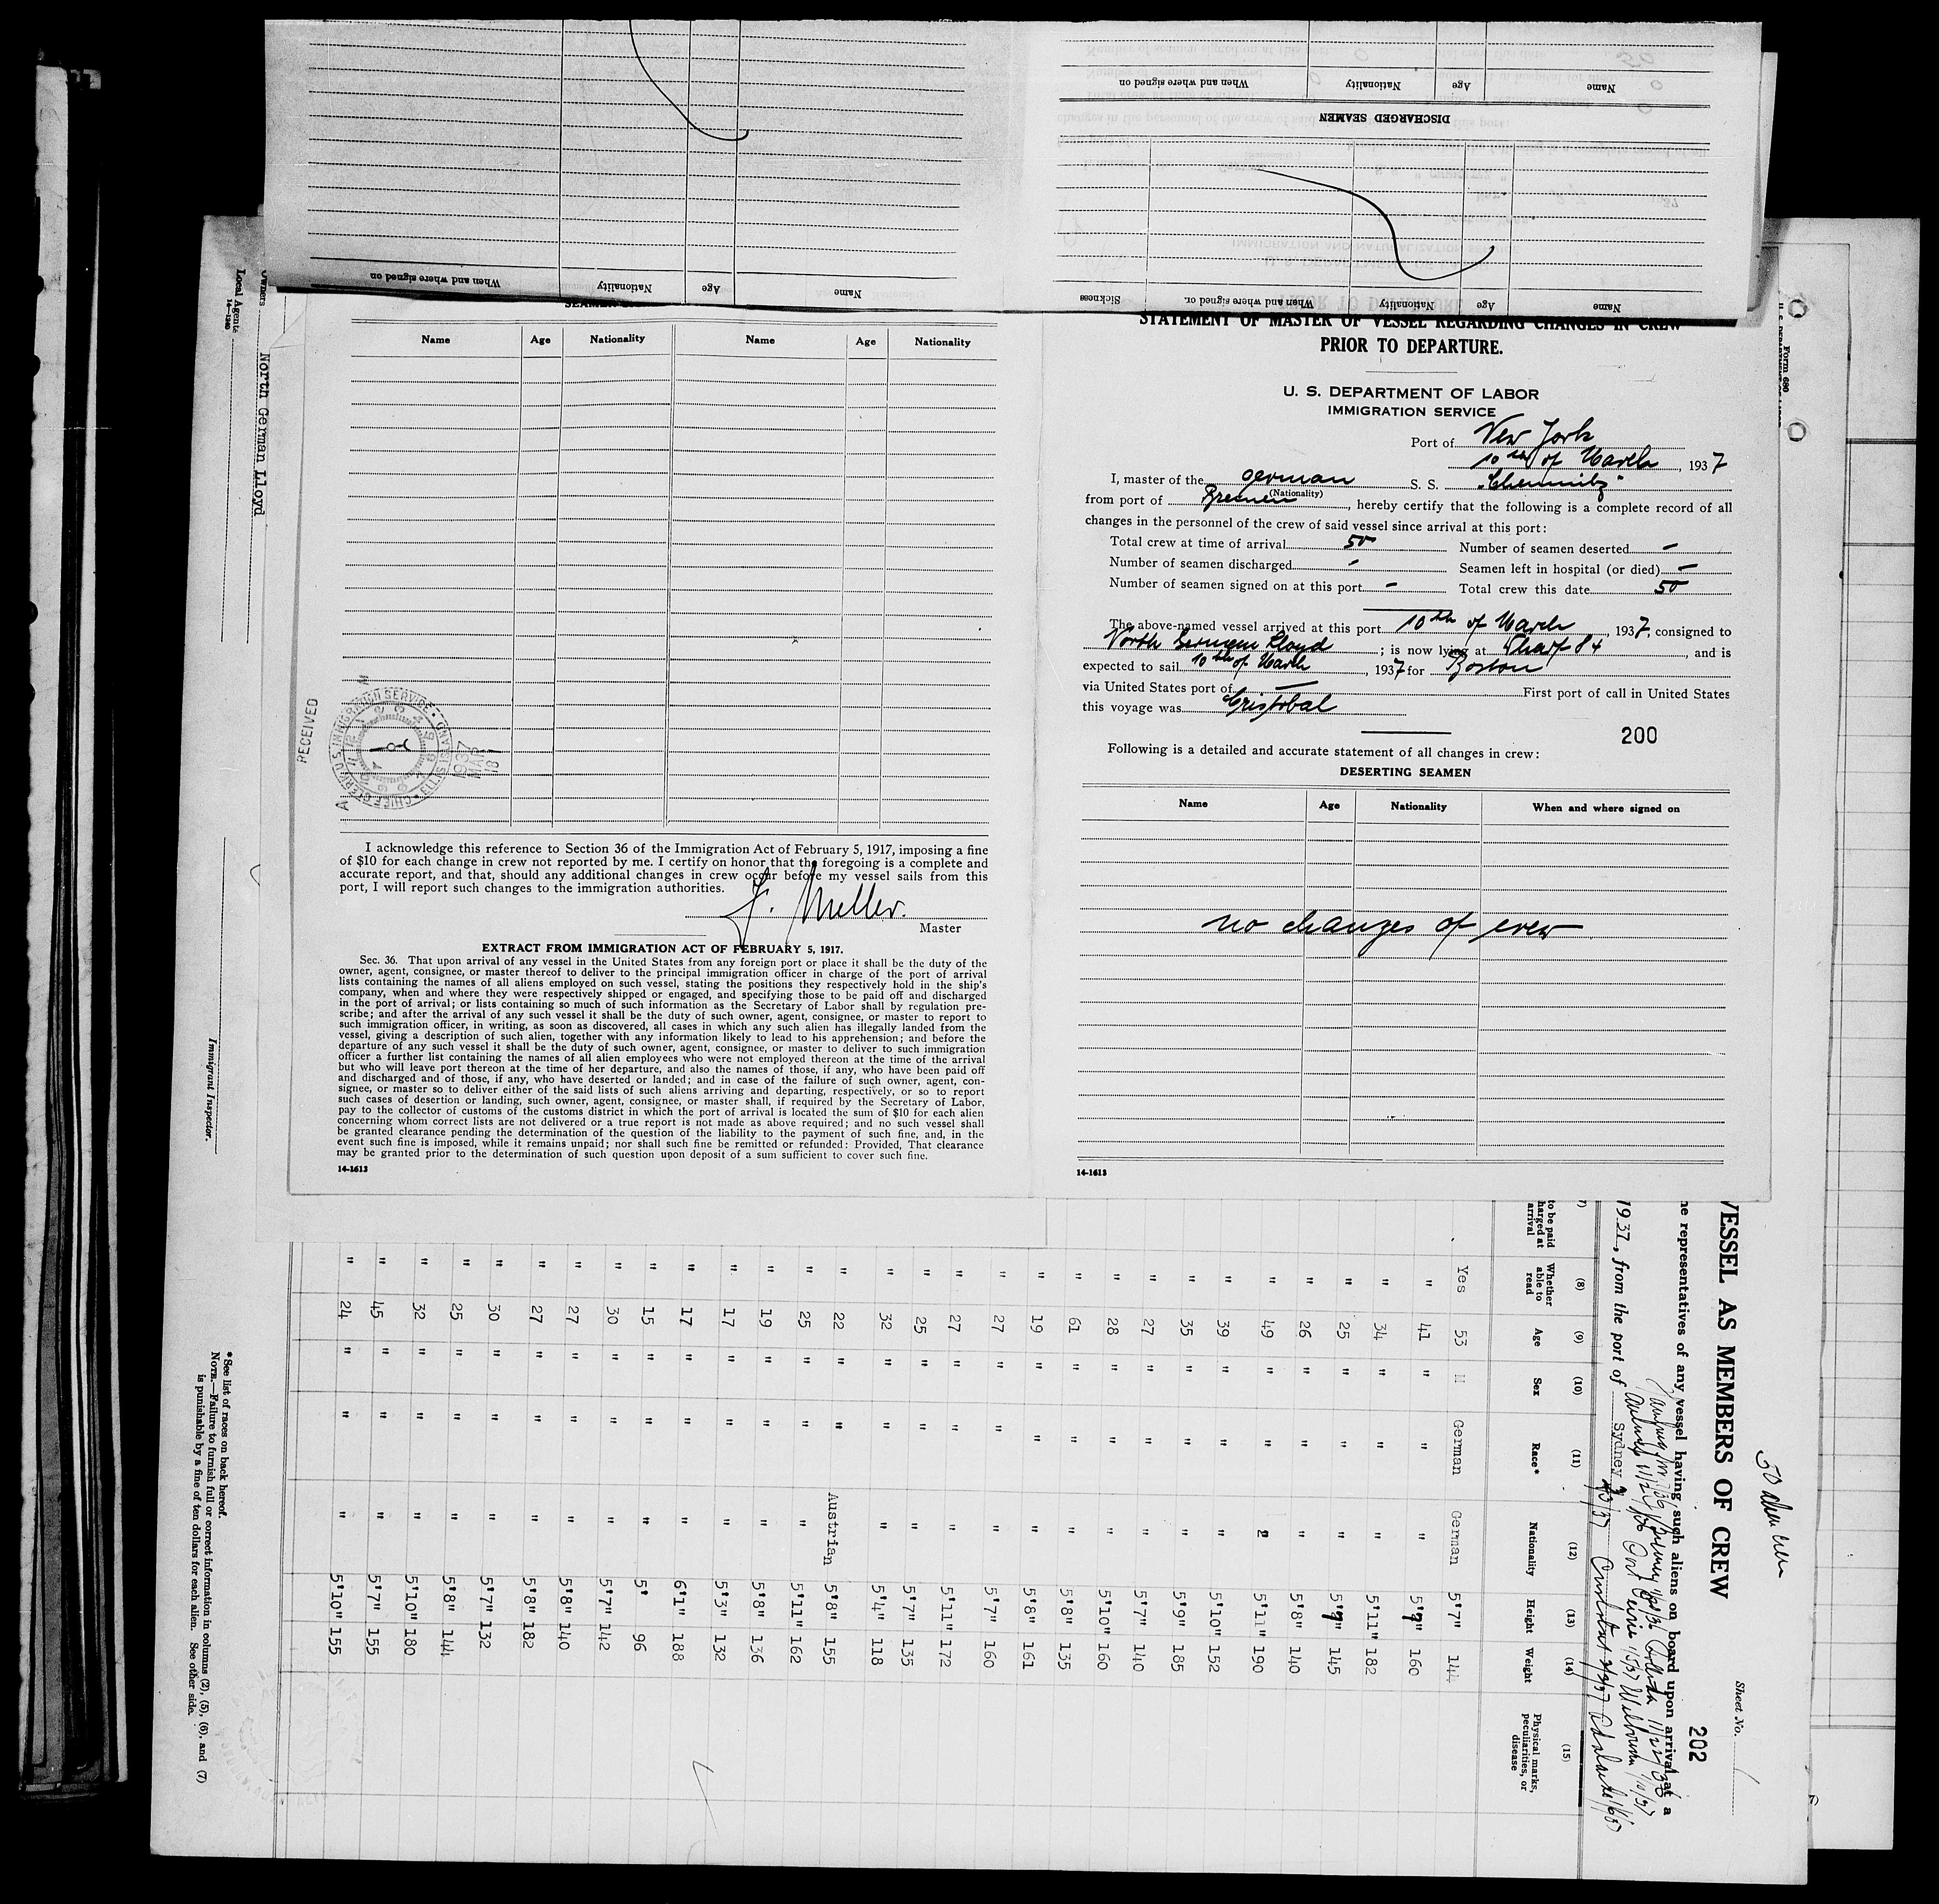 When and where signed on Nationality Age Name
DISCHARGED SEAMEN
When and where signed on Nationality Age Name
Sickness When and where signed on or. Nationality Age Name
Name Age Nationality Name Age Nationality
RECEIVED
CHIEF CLERK U. S. IMMIGRATION SERVICE · ELLIS ISLAND
1937
MAR
18
I acknowledge this reference to Section 36 of the Immigration Act of February 5, 1917, imposing a fine
of $10 for each change in crew not reported by me. I certify on honor that the foregoing is a complete and
accurate report, and that, should any additional changes in crew occur before my vessel sails from this
port, I will report such changes to the immigration authorities.
Master
EXTRACT FROM IMMIGRATION ACT OF FEBRUARY 5, 1917.
Sec. 36. That upon arrival of any vessel in the United States from any foreign port or place it shall be the duty of the
owner, agent, consignee, or master thereof to deliver to the principal immigration officer in charge of the port of arrival
lists containing the names of all aliens employed on such vessel, stating the positions they respectively hold in the ship's
company, when and where they were respectively shipped or engaged, and specifying those to be paid off and discharged
in the port of arrival; or lists containing so much of such information as the Secretary of Labor shall by regulation pre-
scribe; and after the arrival of any such vessel it shall be the duty of such owner, agent, consignee, or master to report to
such immigration officer, in writing, as soon as discovered, all cases in which any such alien has illegally landed from the
vessel, giving a description of such alien, together with any information likely to lead to his apprehension; and before the
departure of any such vessel it shall be the duty of such owner, agent, consignee, or master to deliver to such immigration
officer a further list containing the names of all alien employees who were not employed thereon at the time of the arrival
but who will leave port thereon at the time of her departure, and also the names of those, if any, who have been paid off
and discharged and of those, if any, who have deserted or landed; and in case of the failure of such owner, agent, con-
signee, or master so to deliver either of the said lists of such aliens arriving and departing, respectively, or so to report
such cases of desertion or landing, such owner, agent, consignee, or master shall, if required by the Secretary of Labor,
pay to the collector of customs of the customs district in which the port of arrival is located the sum of $10 for each alien
concerning whom correct lists are not delivered or a true report is not made as above required; and no such vessel shall
be granted clearance pending the determination of the question of the liability to the payment of such fine, and, in the
event such fine is imposed, while it remains unpaid; nor shall such fine be remitted or refunded: Provided, That clearance
may be granted prior to the determination of such question upon deposit of a sum sufficient to cover such fine.
14-1613
STATEMENT OF MASTER OF VESSEL REGARDING CHANGES IN CREW
PRIOR TO DEPARTURE.
U. S. DEPARTMENT OF LABOR
IMMIGRATION SERVICE
Port of New York
10th of March, 1937
I, master of the german S. S. "Chemnitz"
(Nationality)
from port of Bremen, hereby certify that the following is a complete record of all
changes in the personnel of the crew of said vessel since arrival at this port:
Total crew at time of arrival 50 Number of seamen deserted -
Number of seamen discharged - Seamen left in hospital (or died) -
Number of seamen signed on at this port - Total crew this date 50
The above-named vessel arrived at this port 10th of March, 1937, consigned to
North German Lloyd; is now lying at Wharf 84, and is
expected to sail 10th of March, 1937 for Boston
via United States port of — First port of call in United States
this voyage was Cristobal
200
Following is a detailed and accurate statement of all changes in crew:
DESERTING SEAMEN
Name Age Nationality When and where signed on
no changes of crew
14-1613
Owners North German Lloyd
Local Agents
14—1240
Immigrant Inspector.
Form 680
50 alien crew
Sheet No.
202
VESSEL AS MEMBERS OF CREW
representatives of any vessel having such aliens on board upon arrival at a
1937, from the port of Sydney
(8) (9) (10) (11) (12) (13) (14) (15)
to be paid
arrival
Whether able to read Age Sex Race* Nationality Height Weight Physical marks, peculiarities, or disease
Yes 53 M German German 5'7" 144
" 41 " " " 5'7" 160
" 34 " " " 5'11" 182
" 25 " " " 5'7" 145
" 26 " " " 5'8" 140
" 49 " " " 5'11" 190
" 39 " " " 5'10" 152
" 35 " " " 5'9" 185
" 27 " " " 5'7" 140
" 28 " " " 5'10" 160
" 61 " " " 5'8" 135
" 19 " " " 5'8" 161
" 27 " " " 5'7" 160
" 27 " " " 5'11" 172
" 25 " " " 5'7" 135
" 32 " " " 5'4" 118
" 22 " " Austrian 5'8" 155
" 25 " " " 5'11" 162
" 19 " " " 5'8" 136
" 17 " " " 5'3" 132
" 17 " " " 6'1" 188
" 15 " " " 5' 96
" 30 " " " 5'7" 142
" 27 " " " 5'8" 140
" 27 " " " 5'8" 182
" 30 " " " 5'7" 132
" 25 " " " 5'8" 144
" 32 " " " 5'10" 180
" 45 " " " 5'7" 155
" 24 " " " 5'10" 155
* See list of races on back hereof.
NOTE.—Failure to furnish full or correct information in columns (2), (5), (6), and (7)
is punishable by a fine of ten dollars for each alien. See other side.